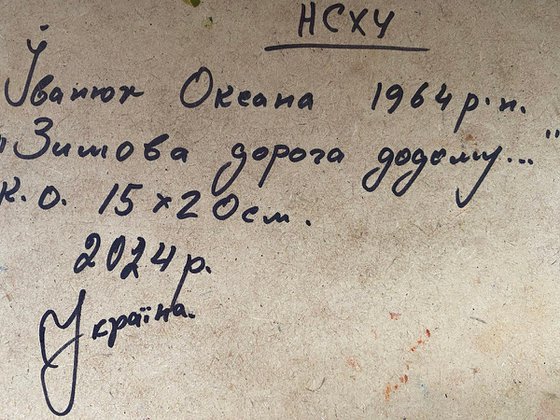 НСХУ
Іванюк Оксана 1964 р.н.
"Зимова дорога додому..."
к.о. 15×20см.
2024 р.
Україна.